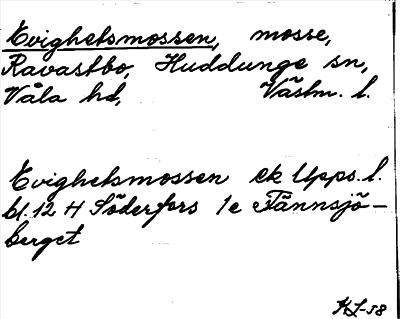 Evighetsmossen, mosse,
Ravastbo, Huddunge sn,
Våla hd, Västm. l.
Evighetsmossen ek Upps. l.
bl. 12 H Söderfors 1e Tännsjö-
berget
KL-58